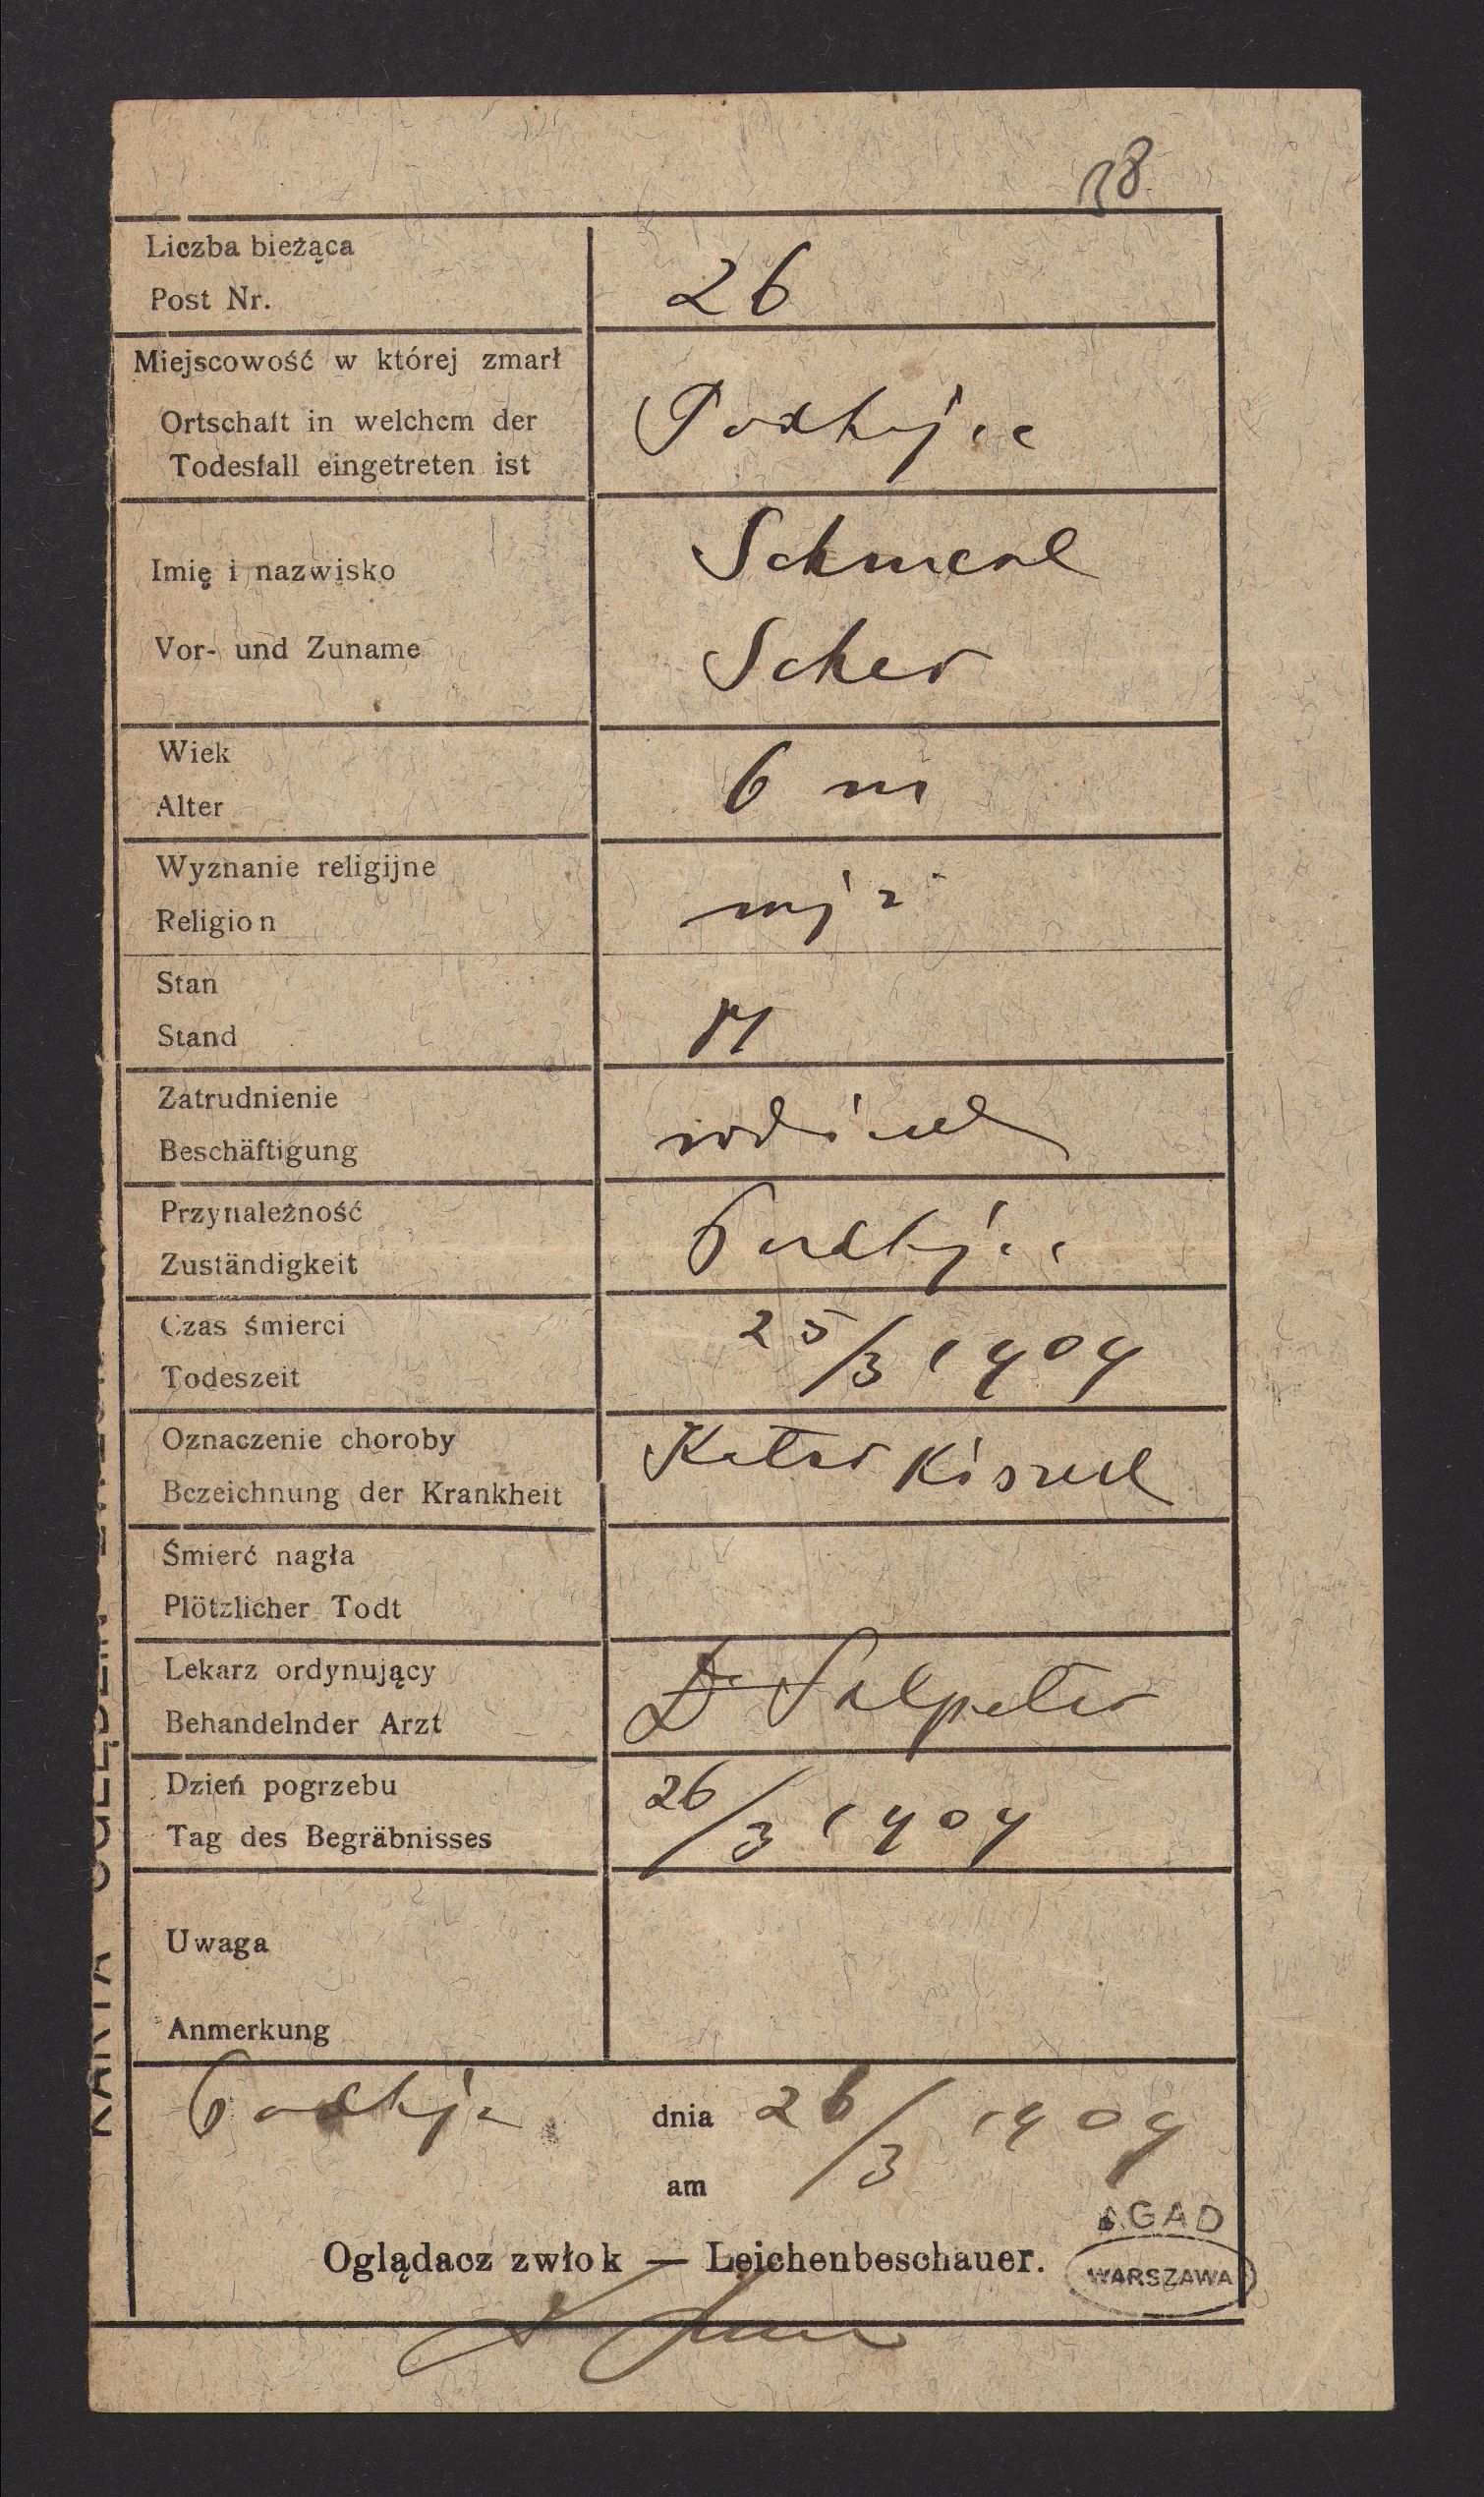 38
Liczba bieżąca
Post Nr.
26
Miejscowość w której zmarł
Ortschaft in welchem der
Todesfall eingetreten ist
Podhajce
Imię i nazwisko
Vor- und Zuname
Schmeral
Scher
Wiek
Alter
6 m
Wyznanie religijne
Religion
mojż
Stan
Stand
Zatrudnienie
Beschäftigung
Przynależność
Zuständigkeit
Podhajce
Czas śmierci
Todeszeit
25/3 1909
Oznaczenie choroby
Bezeichnung der Krankheit
Katar Kiszek
Śmierć nagła
Plötzlicher Todt
Lekarz ordynujący
Behandelnder Arzt
Dr Salpeter
Dzień pogrzebu
Tag des Begräbnisses
26/3 1909
Uwaga
Anmerkung
Podhajce dnia 26/3 1909
am
Oglądacz zwłok — Leichenbeschauer.
AGAD
WARSZAWA
KARTA OGLĘDZIN